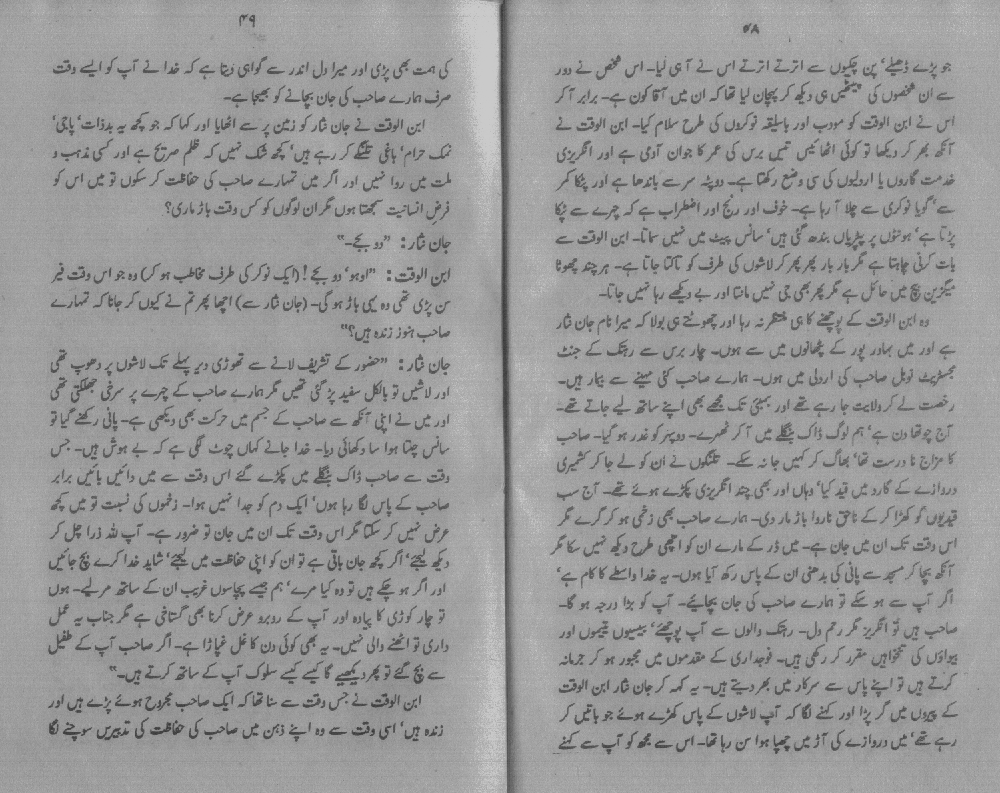 ۴۸
جو پڑے ڈھیلے‘ پن چکیوں سے اترتے اترتے اس نے آ ہی لیا۔ اس شخص نے دور
سے ان شخصوں کی پیٹھیں ہی دیکھ کر پہچان لیا تھا کہ ان میں آقا کون ہے۔ برابر آ کر
اس نے ابن الوقت کو مودب اور باسلیقہ نوکروں کی طرح سلام کیا۔ ابن الوقت نے
آنکھ بھر کر دیکھا تو کوئی اٹھائیس تیس برس کی عمر کا جوان آدمی ہے اور انگریزی
خدمت گاروں یا اردلیوں کی سی وضع رکھتا ہے۔ دوپٹہ سر سے باندھا ہے اور پٹکا کمر
سے‘ گویا نوکری سے چلا آ رہا ہے۔ خوف اور رنج اور اضطراب ہے کہ چہرے سے ٹپکا
پڑتا ہے‘ ہونٹوں پر پپڑیاں بندھ گئی ہیں‘ سانس پیٹ میں نہیں سماتا۔ ابن الوقت سے
بات کرنی چاہتا ہے مگر بار بار پھر پھر کر لاشوں کی طرف کو تاکتا جاتا ہے۔ ہر چند چھوٹا
میگزین بیچ میں حائل ہے مگر پھر بھی جی نہیں مانتا اور بے دیکھے رہا نہیں جاتا۔
وہ ابن الوقت کے پوچھنے کا ہی منتظر نہ رہا اور چھوٹتے ہی بولا کہ میرا نام جان نثار
ہے اور میں بہادر پور کے پٹھانوں میں سے ہوں۔ چار برس سے رہتک کے جنٹ
مجسٹریٹ نوبل صاحب کی اردلی میں ہوں۔ ہمارے صاحب کئی مہینے سے بیمار ہیں۔
رخصت لے کر ولایت جا رہے تھے اور بمبئی تک مجھے بھی اپنے ساتھ لیے جاتے تھے۔
آج چوتھا دن ہے‘ ہم لوگ ڈاک بنگلے میں آ کر ٹھہرے۔ دوپہر کو غدر ہو گیا۔ صاحب
کا مزاج نا درست تھا‘ بھاگ کر کہیں جا نہ سکے۔ تلنگوں نے ان کو لے جا کر کشمیری
دروازے کے گارد میں قید کیا‘ وہاں اور بھی چند انگریزی پکڑے ہوئے تھے۔ آج سب
قیدیوں کو کھڑا کر کے ناحق ناروا باڑ مار دی۔ ہمارے صاحب بھی زخمی ہو کر گرے مگر
اس وقت تک ان میں جان ہے۔ میں ڈر کے مارے ان کو اچھی طرح دیکھ نہیں سکا مگر
آنکھ بچا کر مسجد سے پانی کی بدھنی ان کے پاس رکھ آیا ہوں۔ یہ خدا واسطے کا کام ہے‘
اگر آپ سے ہو سکے تو ہمارے صاحب کی جان بچائیے۔ آپ کو بڑا درجہ ہو گا۔
صاحب ہیں تو انگریز مگر رحم دل۔ رہتک والوں سے آپ پوچھئے‘ بیسیوں یتیموں اور
بیواؤں کی تنخواہیں مقرر کر رکھی ہیں۔ فوجداری کے مقدموں میں مجبور ہو کر جرمانہ
کرتے ہیں تو اپنے پاس سے سرکار میں بھر دیتے ہیں۔ یہ کہہ کر جان نثار ابن الوقت
کے پیروں میں گر پڑا اور کہنے لگا کہ آپ لاشوں کے پاس کھڑے ہوئے جو باتیں کر
رہے تھے‘ میں دروازے کی آڑ میں چھپا ہوا سن رہا تھا۔ اس سے مجھ کو آپ سے کہنے
۴۹
کی ہمت بھی پڑی اور میرا دل اندر سے گواہی دیتا ہے کہ خدا نے آپ کو ایسے وقت
صرف ہمارے صاحب کی جان بچانے کو بھیجا ہے۔
ابن الوقت نے جان نثار کو زمین پر سے اٹھایا اور کہا کہ جو کچھ یہ بدذات‘ پاجی‘
نمک حرام‘ باغی تلنگے کر رہے ہیں‘ کچھ شک نہیں کہ ظلم صریح ہے اور کسی مذہب و
ملت میں روا نہیں اور اگر میں تمہارے صاحب کی حفاظت کر سکوں تو میں اس کو
فرض انسانیت سمجھتا ہوں مگر ان لوگوں کو کس وقت باڑ ماری؟
جان نثار: ”دو بجے۔“
ابن الوقت: ”اوہو‘ دو بجے! (ایک نوکر کی طرف مخاطب ہو کر) وہ جو اس وقت فیر
سن پڑی تھی وہ یہی باڑ ہو گی۔ (جان نثار سے) اچھا پھر تم نے کیوں کر جانا کہ تمہارے
صاحب ہنوز زندہ ہیں؟“
جان نثار: ”حضور کے تشریف لانے سے تھوڑی دیر پہلے تک لاشوں پر دھوپ تھی
اور لاشیں تو بالکل سفید پڑ گئی تھیں مگر ہمارے صاحب کے چہرے پر سرخی جھلکتی تھی
اور میں نے اپنی آنکھ سے صاحب کے جسم میں حرکت بھی دیکھی ہے۔ پانی رکھنے گیا تو
سانس چلتا ہوا سا دکھائی دیا۔ خدا جانے کہاں چوٹ لگی ہے کہ بے ہوش ہیں۔ جس
وقت سے صاحب ڈاک بنگلے میں پکڑے گئے اس وقت سے میں دائیں بائیں برابر
صاحب کے پاس لگا رہا ہوں‘ ایک دم کو جدا نہیں ہوا۔ زخموں کی نسبت تو میں کچھ
عرض نہیں کر سکتا مگر اس وقت تک ان میں جان تو ضرور ہے۔ آپ للہ ذرا چل کر
دیکھ لیجئے‘ اگر کچھ جان باقی ہے تو ان کو اپنی حفاظت میں لیجئے‘ شاید خدا کرے بچ جائیں
اور اگر ہو چکے ہیں تو وہ کیا مرے‘ ہم جیسے پچاسوں غریب ان کے ساتھ مر لیے۔ ہوں
تو چار کوڑی کا پیادہ اور آپ کے روبرو عرض کرنا بھی گستاخی ہے مگر جناب یہ عمل
داری تو اٹھنے والی نہیں۔ یہ بھی کوئی دن کا غل غپاڑا ہے۔ اگر صاحب آپ کے طفیل
سے بچ گئے تو پھر دیکھیے گا کیسے کیسے سلوک آپ کے ساتھ کرتے ہیں۔“
ابن الوقت نے جس وقت سے سنا تھا کہ ایک صاحب مجروح ہوئے پڑے ہیں اور
زندہ ہیں‘ اسی وقت سے وہ اپنے ذہن میں صاحب کی حفاظت کی تدبیریں سوچنے لگا